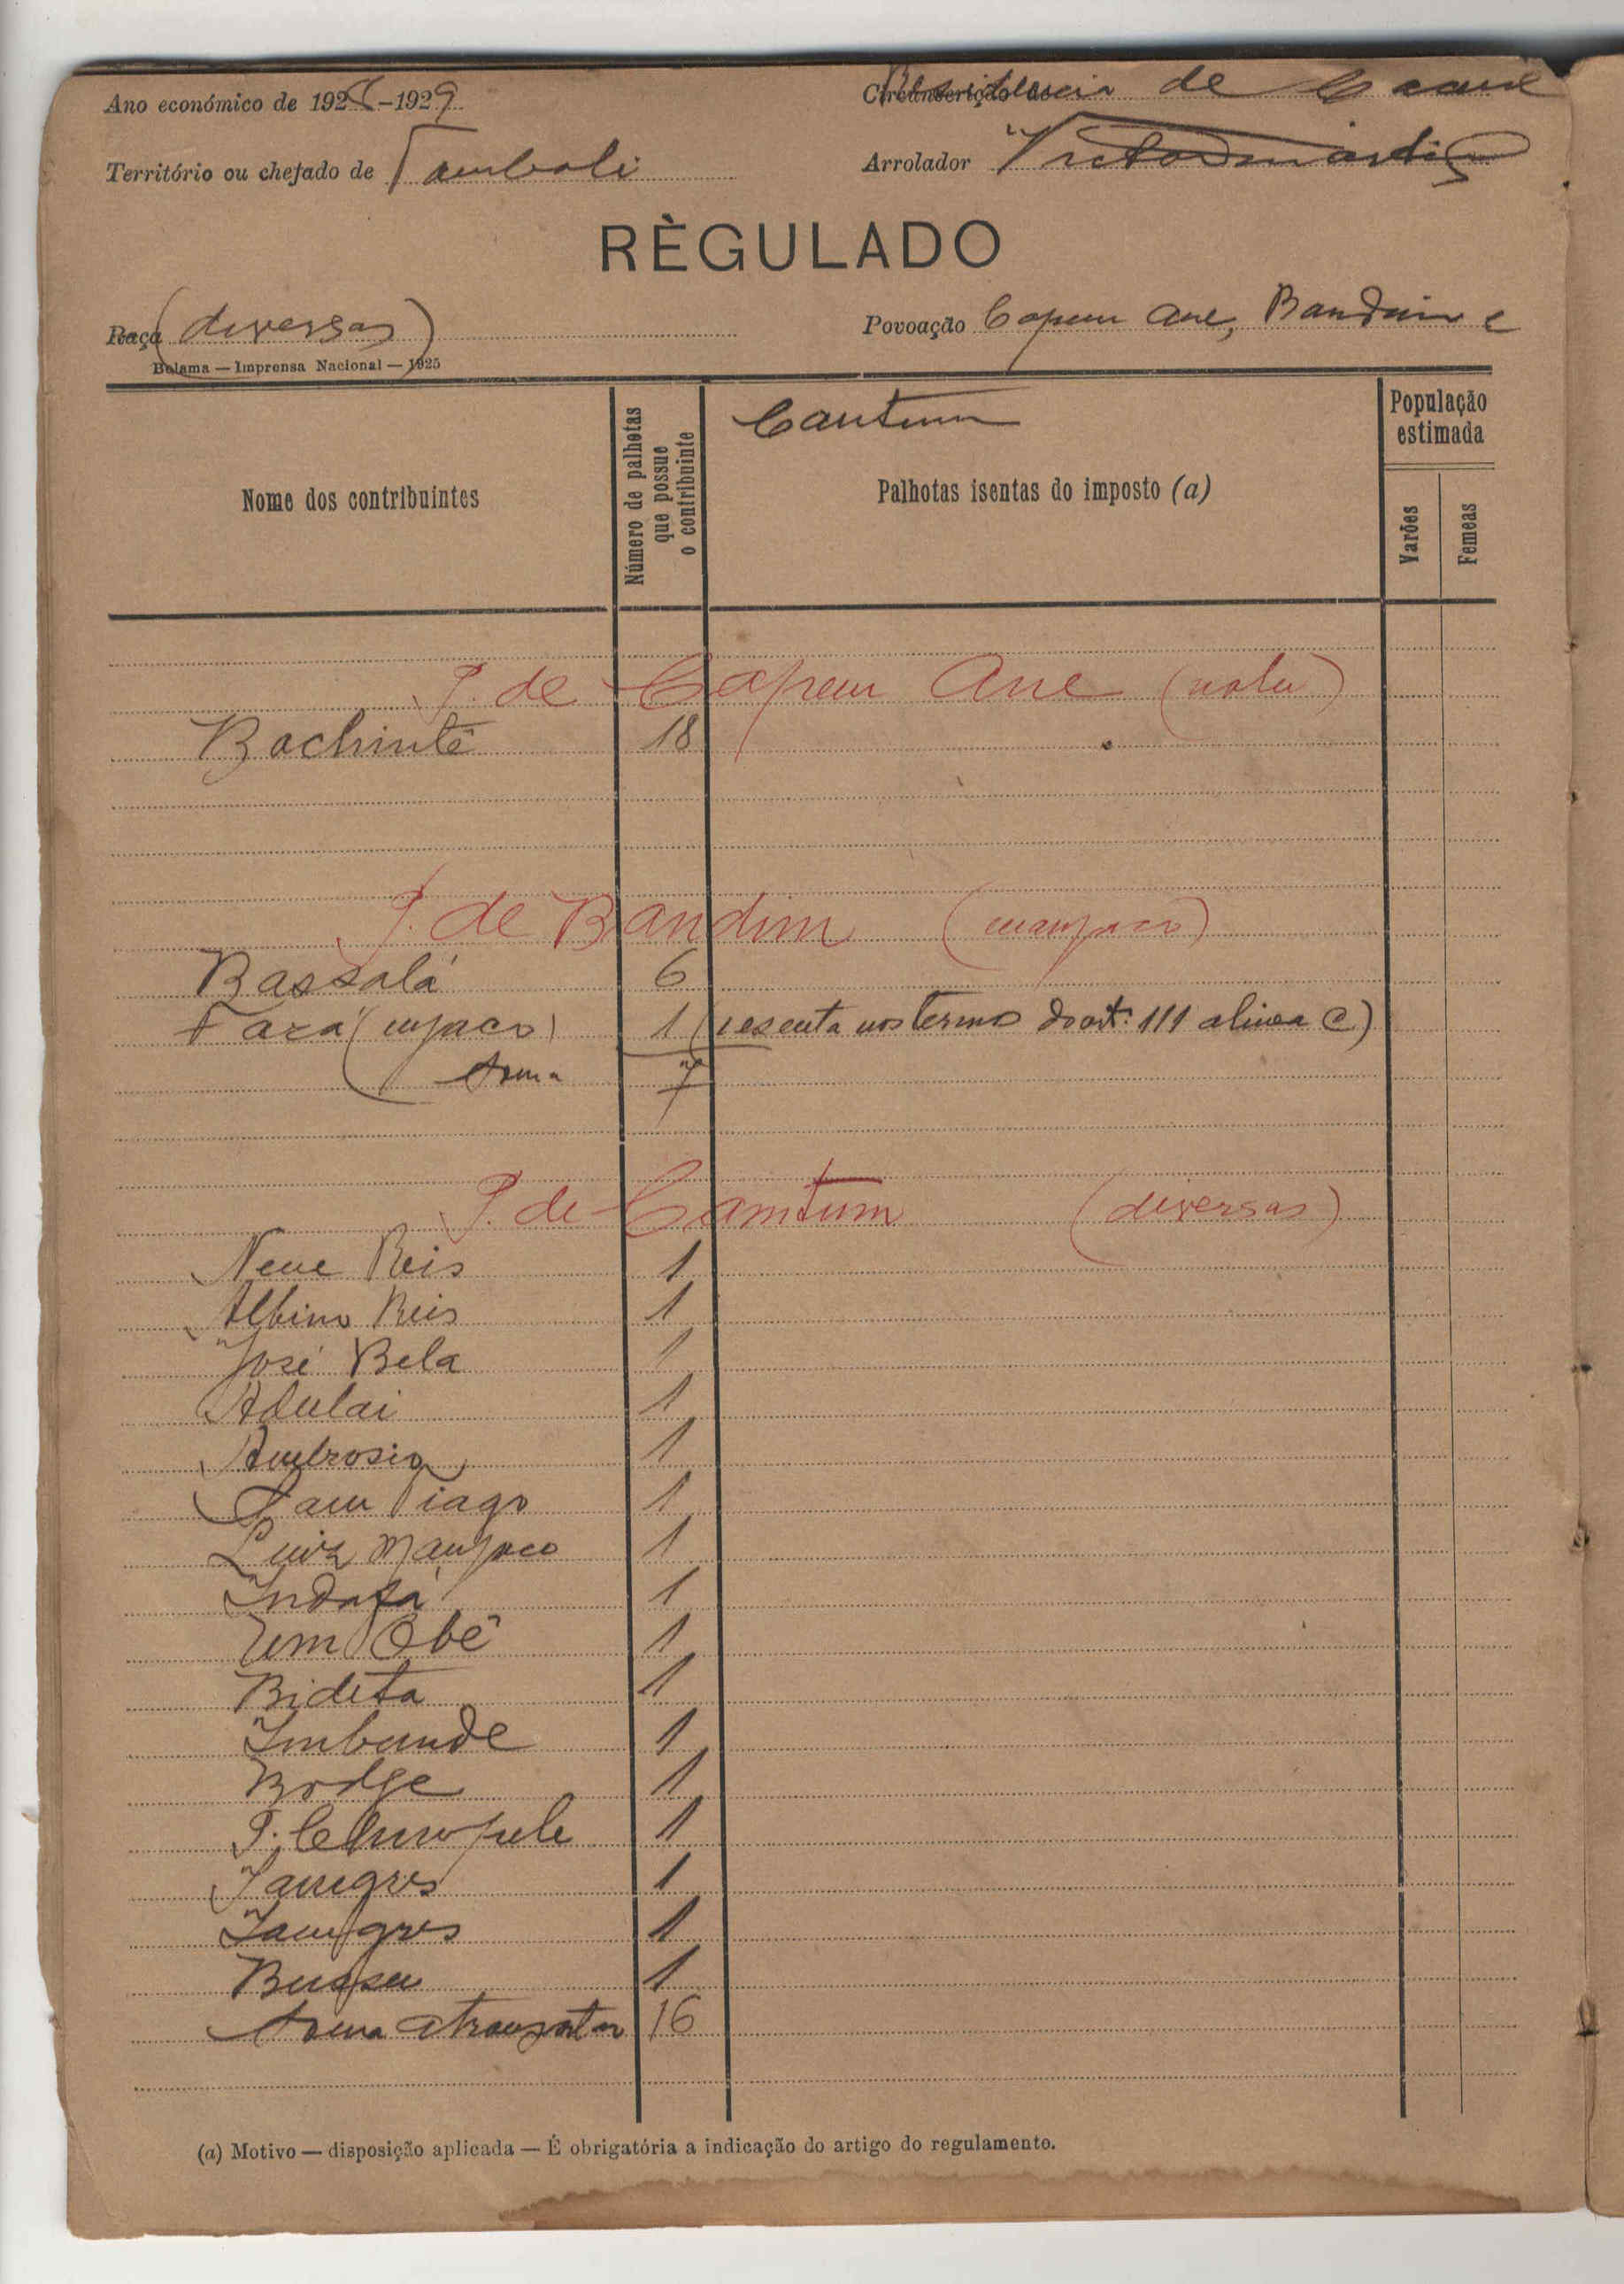 Ano económico de 1928-1929
Residencia de Cacine
Território ou chefado de Tamboli
Arrolador Victor Martins
RÈGULADO
Raça (diversas)
Povoação Capem Ane, Bandim e
Bolama — Imprensa Nacional — 1925
Cantum
Nome dos contribuintes
Número de palhotas que possue o contribuinte
Palhotas isentas do imposto (a)
População estimada
Varões
Femeas
P. de Capem Ane (nalu)
Bachintê 18
P. de Bandim (manjaco)
Bassalá 6
(mjaco) 1 (esenta nos termos do art. 111 alinea C)
Soma 7
P. de Camtum (diversas)
Nene Reis 1
Albino Reis 1
José Bela 1
Adulai 1
Ambrosio 1
Sam Tiago 1
Luiz Manjaco 1
Indafá 1
Um Obê 1
Bideta 1
Imbunde 1
Bodge 1
1
Tamgres 1
Tamgres 1
1
Soma a transportar 16
(a) Motivo — disposição aplicada — É obrigatória a indicação do artigo do regulamento.